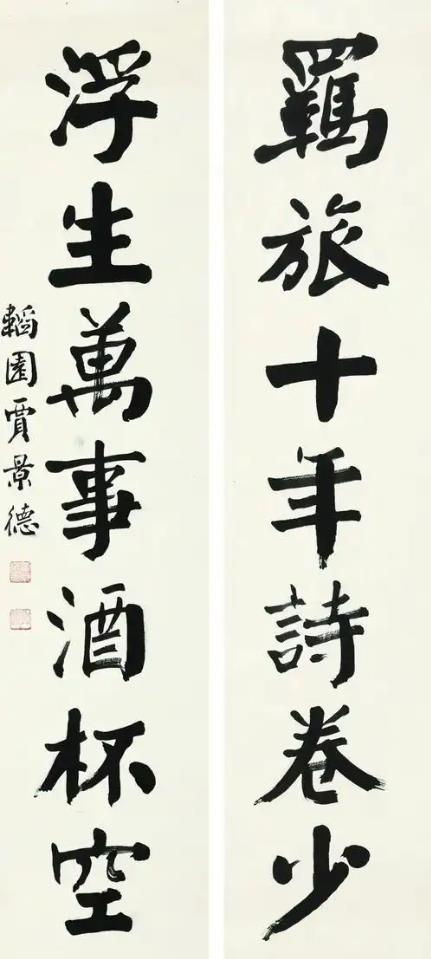 羈旅十年詩卷少
浮生萬事酒杯空
韜園賈景德